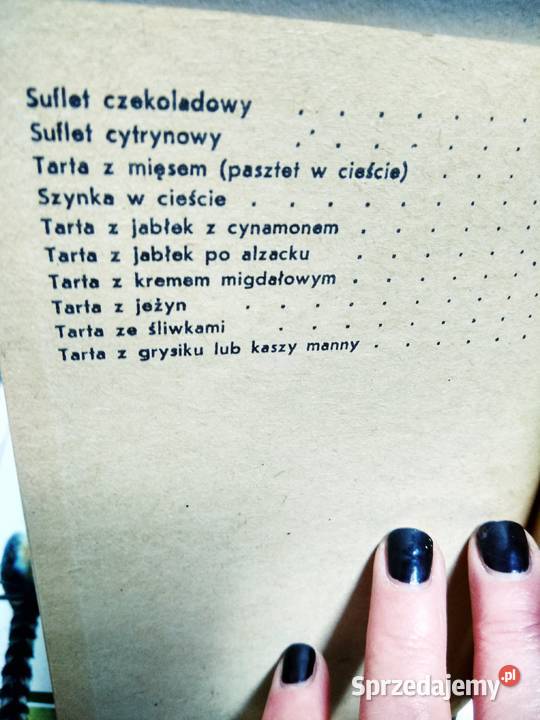 Suflet czekoladowy . . . . . .
Suflet cytrynowy . . . . . .
Tarta z mięsem (pasztet w cieście) . . . .
Szynka w cieście . . . . . . . .
Tarta z jabłek z cynamonem . . . . . .
Tarta z jabłek po alzacku . . . . .
Tarta z kremem migdałowym . . . . . .
Tarta z jeżyn . . . . . . . .
Tarta ze śliwkami . . . . . . .
Tarta z grysiku lub kaszy manny . . . . .
Sprzedajemy.pl